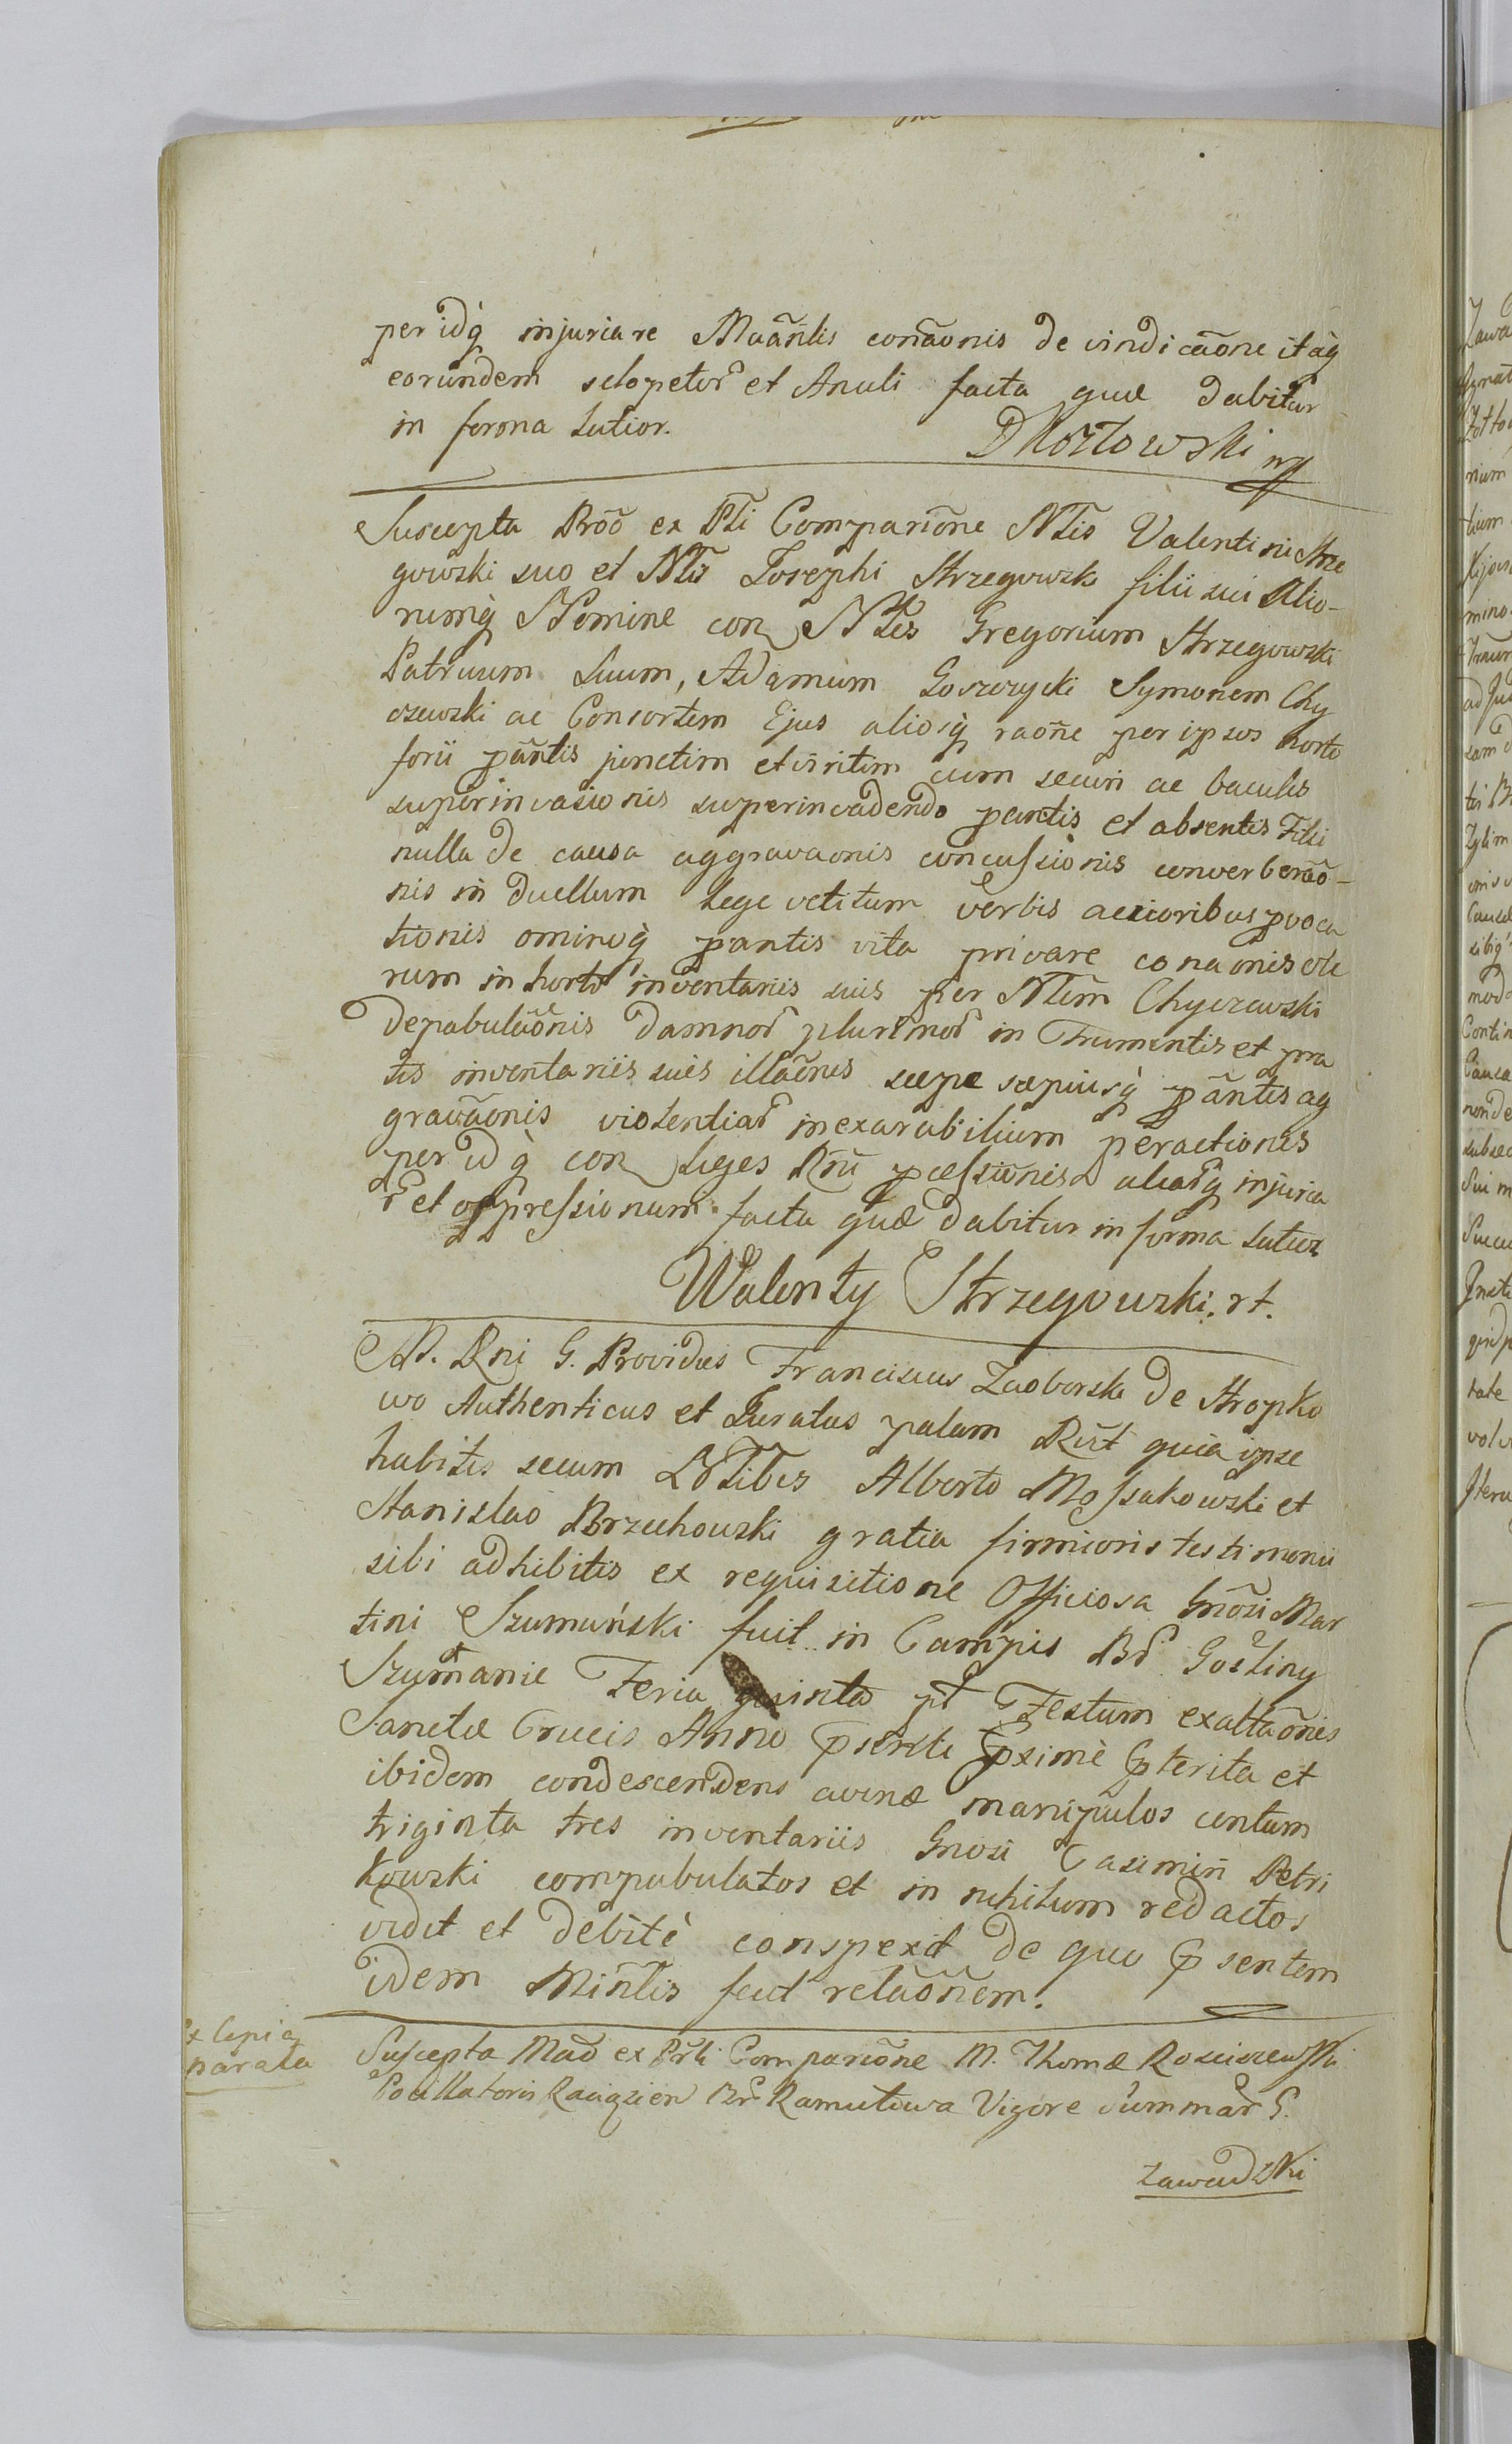 per idq̀ injuriare Maãntis conãonis de vindicãone itaq̀
eorundem sclopetor̃ et Anuli facta quæ dabitur
in forma Latior.
DKozłowski mp
Suscepta Proõ ex Pti Comparione Nlis Valentini Strze
gowski suo et Nlis Josephi Strzegowski filii sui Alio-
rumq̀ Nomine con Nles Gregorium Strzegowski
Patruum Suum, Adamum Goszczycki Symonem Chy
czewski ac Consortem Ejus aliosq̀ raõne per ipsos horto
forii pañtis junctim et viritim cum securi ac baculis
superinvasionis superinvadendo pantis et absentis Filii
nulla de causa aggravaonis concussionis converberaõ-
nis in duellum Lege vetitum verbis acrioribus provoca
tionis ominoq̀ pantis vita privare conaonis ole
rum in horto inventariis suis per Nlem Chyczewski
depabulaõnis damnor̃ plurimor̃ in Frumentis et pra
tis inventariis suis illaõnis sæpe sæpiusq̀ pãntis ag
gravãonis violentiar̃ inexarabilium peractionis
per idq̀ con Leges Rni pcessionis aliarq̀ injuria
r̃ et oppressionum facta quæ dabitur in forma Latior
Walenty Strzegowski. rt.
M. Rni G. Providus Franciscus Zaoborski de Stropko
wo Authenticus et Juratus palam Rłt quia ipse
habitis secum Nlibus Alberto Mossakowski et
Stanislao Brzechowski gratia firmioris testimonii
sibi adhibitis ex requisitione Officiosa Gnõsi Mar
tini Szumański fuit in Campis Br̃ Gośliny
Szumanie Feria quinta pt Festum exaltãonis
Sanctæ Crucis Anno psenti pximè pterita et
ibidem condescendens avenæ manipulos centum
triginta tres inventariis Gnosi Casimiri Petri
kowski compabulatos et in nihilum redactos
vidit et debitè conspexit de quo psentem
idem Mintlis fecit relãonem.
Ex Copia
parata
Suscepta Maõ ex Prti Comparicõne M. Thomæ Rosciszewski
Pocillatoris Raciązien Br̃ Ramutowa Vigore Summar̃ S.
Zawadzki